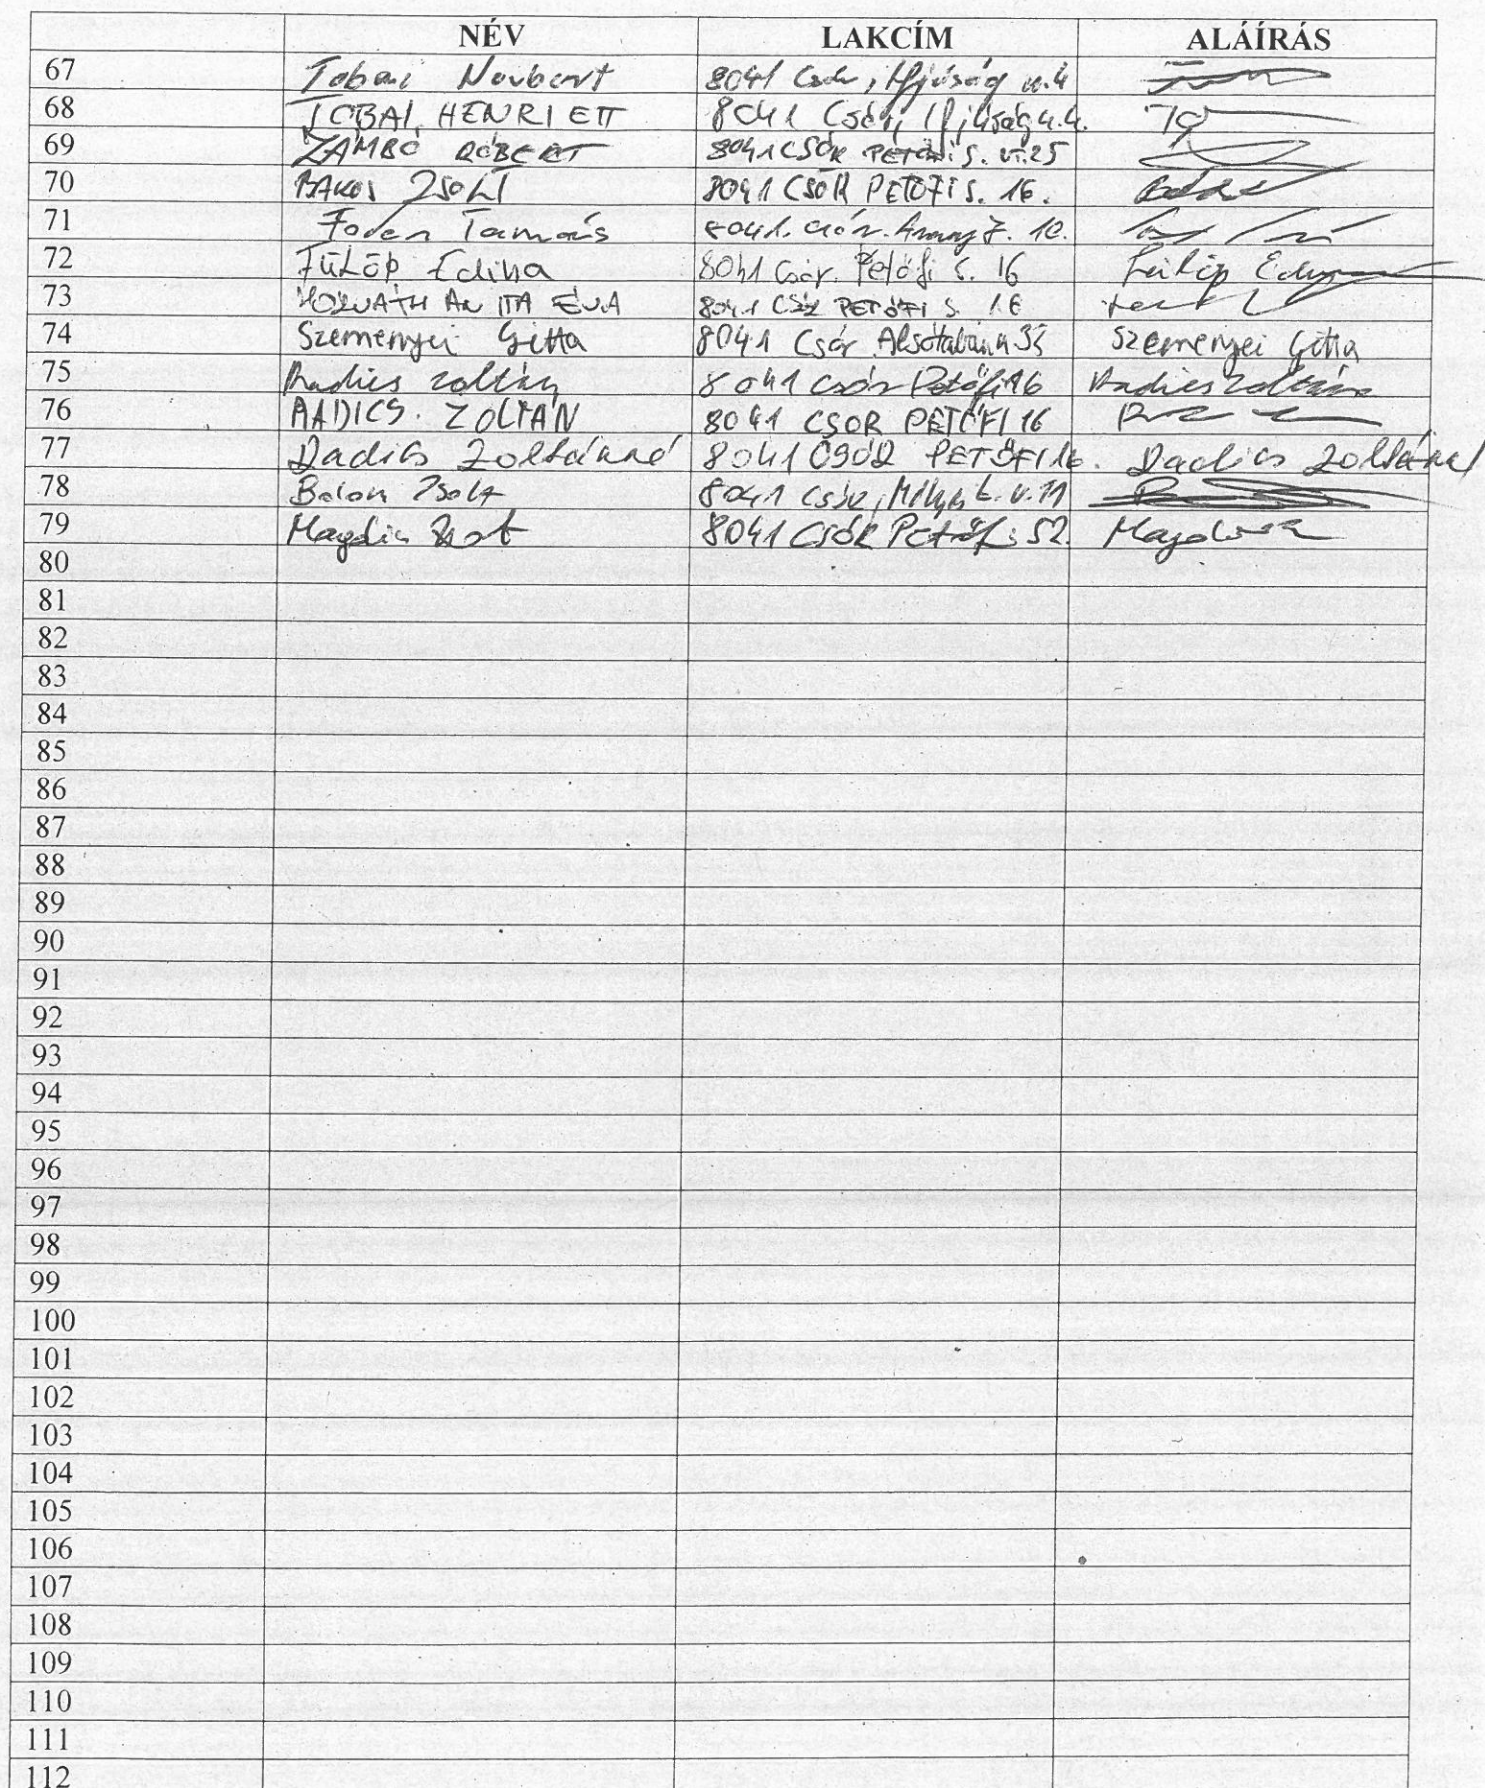 NÉV LAKCÍM ALÁÍRÁS
67 Tobai Norbert 8041 Csór, Ifjúság u.4
68 TOBAI HENRIETT 8041 Csór, Ifjúság u.4.
69 ZÁMBÓ RÓBERT 8041 CSÓR PETŐFI S. u.25
70 BAKOS ZSOLT 8041 CSÓR PETŐFI S. 16.
71 Fodor Tamás 8041. Csór. Arany J. 10.
72 FÜLÖP Edina 8041 Csór. Petőfi S. 16 Fülöp Edina
73 HORVÁTH ANITA ÉVA 8041 CSÓR PETŐFI S. 16
74 Szemenyei Gitta 8041 Csór Alsótabán u 35 Szemenyei Gitta
75 Radics Zoltán 8041 Csór Petőfi 16 Radics Zoltán
76 RADICS. ZOLTÁN 8041 CSÓR PETŐFI 16
77 Radics Zoltánné 8041 CSÓR PETŐFI 16. Radics Zoltánné
78 Zsolt 8041 Csór, u. 11
79 8041 CSÓR Petőfi 52.
80
81
82
83
84
85
86
87
88
89
90
91
92
93
94
95
96
97
98
99
100
101
102
103
104
105
106
107
108
109
110
111
112